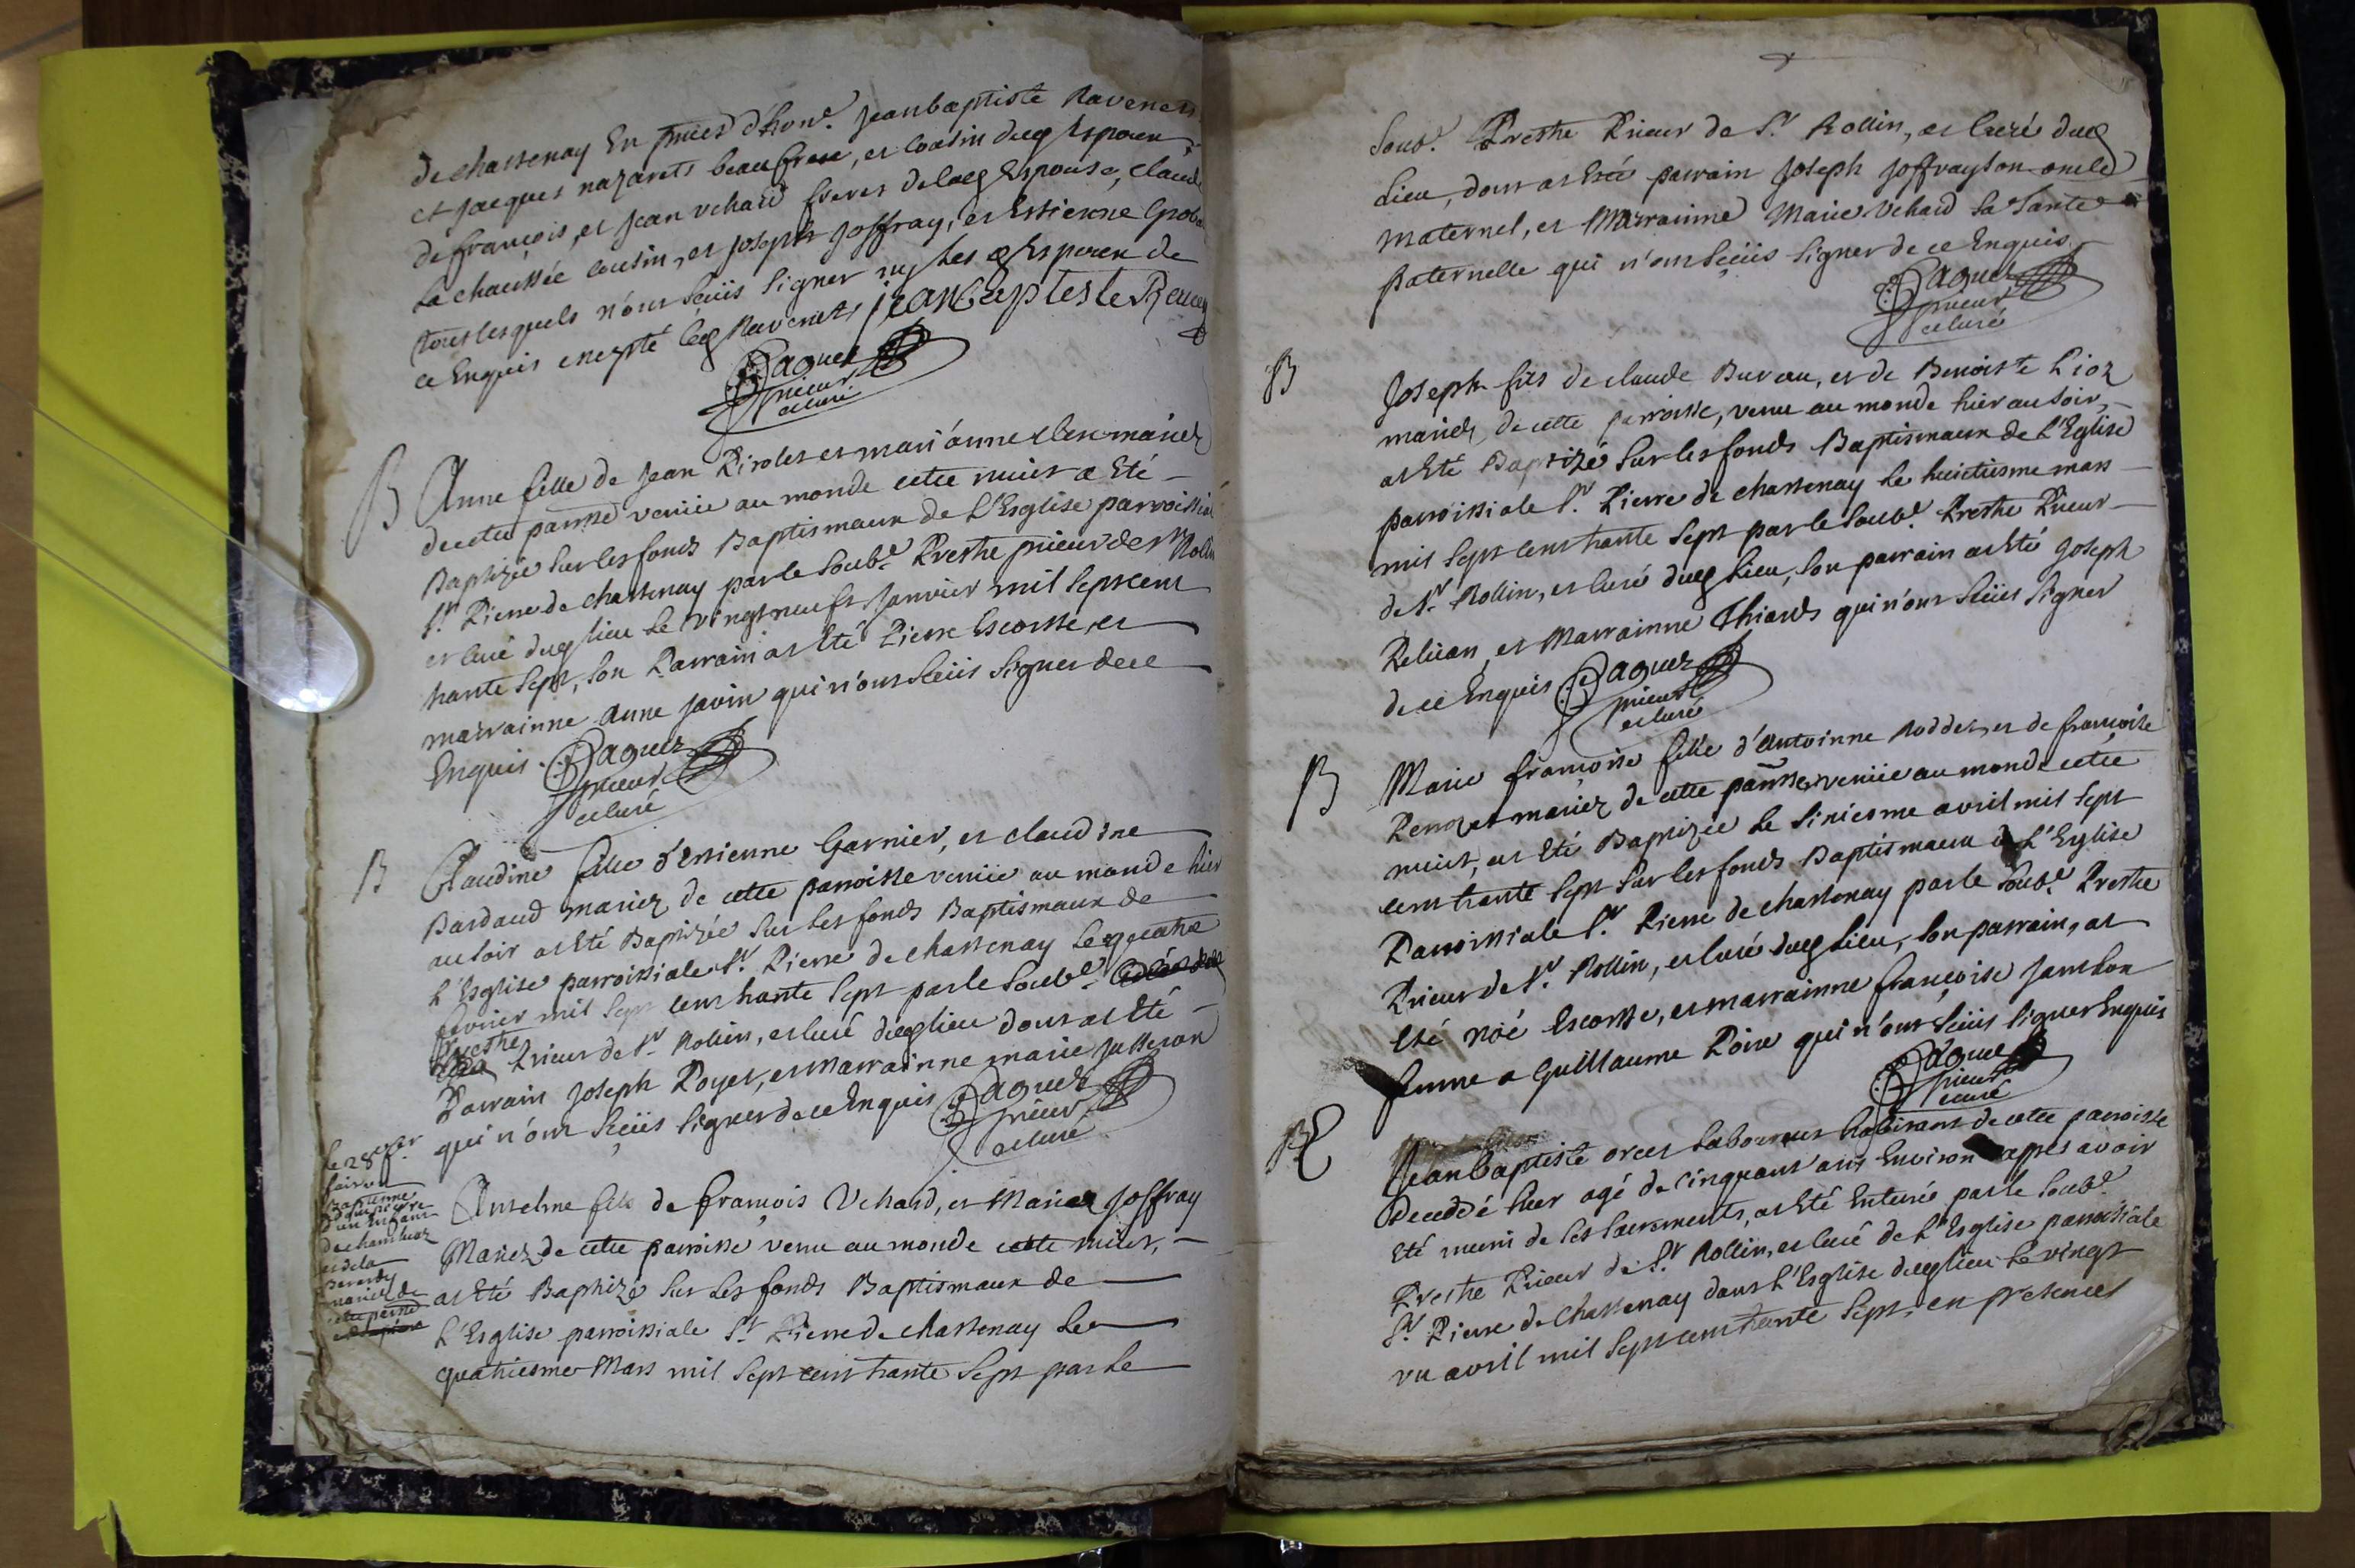 de chassenay En pnces d'hone. Jeanbaptiste Ravenets
et Jacques nazarets beaufrere, et cousin dud Espoux,
de françois, et jean vehard freres de lad Espouse, claude
La chaussée cousin, et joseph Joffray, et Estienne
tous lesquels n'ont sceüs signer ny les d Espoux de
ce Enquis excepté led Ravenets jeanbapteste Raven
Paquez
prieur
et curé
B
Anne fille de Jean Pirolet et mari'anne mariez
de cette parsse venüe au monde cette nuict a Eté
Baptizée sur les fonds Baptismaux de L'Esglise parroissiale
St. Pierre de chassenay par le soubs. Prestre prieur de St Rollin
et curé dud lieu le vingt neufs Janvier mil sept cent
trante sept, son Parrain at Eté Pierre Escosse, et
marrainne Anne Javin qui n'ont sceüs signer de ce
Enquis. Paquez
prieur
et curé
B
Claudine fille d'Estienne Garnier, et claudine
Bardaud mariez de cette parroisse venüe au monde hier
au soir at Eté Baptizée sur les fonds Baptismaux de
L'Esglise parroissiale St. Pierre de chassenay le quatre
fevrier mil sept cent trante sept par le soubs.
Prestre
Prieur de St. Rollin, et curé dud lieu dont at Eté
Parrain Joseph Royer, et Marrainne marie Jusseran
qui n'ont sceüs signer de ce Enquis Paquez
prieur
et curé
le 28
Baptesme
d'un Enfant
de
et de la
mariez de
cette parsse
Anselme fils de françois Vehard, et Marie Joffray
Mariez de cette parroisse venu au monde cette nuict,
at Eté Baptizé sur les fonds Baptismaux de
L'Esglise parroissiale St. Pierre de chassenay le
quatriesme Mars mil sept cent trante sept par le
soubs. Prestre Prieur de St. Rollin, et Curé dud
Lieu, dont at Eté parrain Joseph Joffray son oncle
maternel, et Marrainne Marie Vehard sa Tante
paternelle qui n'ont sceüs signer de ce Enquis
Paquez
prieur
et curé
B
Joseph fils de claude Bureau, et de Benoiste Lioz
mariez de cette parroisse, venu au monde hier au soir,
at Eté Baptizé sur les fonds Baptismaux de L'Eglise
parroissiale St. Pierre de chassenay le huictiesme mars
mil sept cent trante sept par le soubs. Prestre Prieur
de St. Rollin, et curé dud Lieu, son parrain at Eté Joseph
Relican, et Marrainne Thiards qui n'ont sceüs signer
de ce Enquis Paquez
prieur
et curé
B
Marie françoise fille d'Antoinne Roddet, et de françoise
mariez de cette parsse, venüe au monde cette
nuict, at Eté Baptizée le sixiesme avril mil sept
cent trante sept sur les fonds Baptismaux de L'Eglise
Parroissiale St. Pierre de chassenay par le soubs. Prestre
Prieur de St. Rollin, et curé dud Lieu, son parrain, at
Eté Noé Escosse, et marrainne françoise Jambon
femme a Guilliaume Poire qui n'ont sceüs signer Enquis
Paquez
prieur
et curé
Jeanbaptiste orcet laboureur habitant de cette parroisse
Decedde hier agé de cinquant ans Environ apres avoir
Eté muni de ses sacrements, at Eté Enterré par le soubs.
Prestre Prieur de St. Rollin, et curé de L'Esglise parroissiale
St. Pierre de chassenay dans L'Esglise dud lieu le vingt
un avril mil sept cent trante sept, en presences